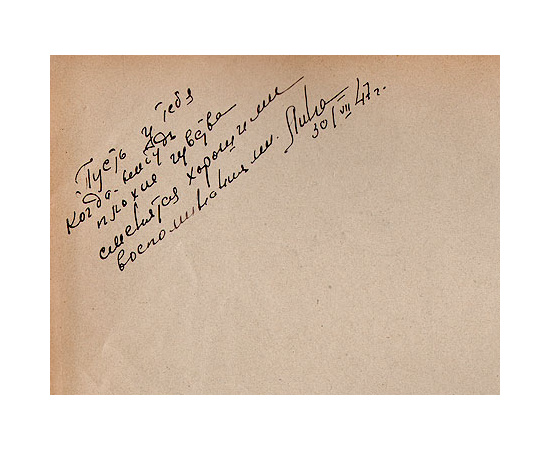 Пусть у тебя
когда-нибудь
плохие чувства
сменятся хорошими
воспоминаниями. Лина
30/VII 47 г.